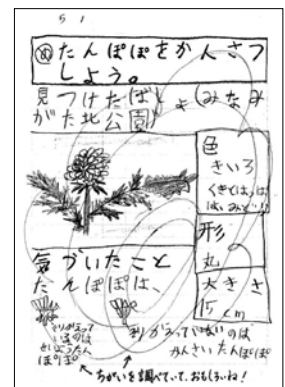 5 1
めたんぽぽをかんさつ
しよう。
見つけたばしょ(みなみ
がた北公園)
色
きいろ
くきとはっぱ
は、みどり!!
形
丸
大きさ
15cm
気づいたこと
たんぽぽは、
そりかえって
いるのは
せいようたん
ぽぽ
そりかえっていないのは
かんさいたんぽぽ
ちがいを調べていて、おもしろいね!